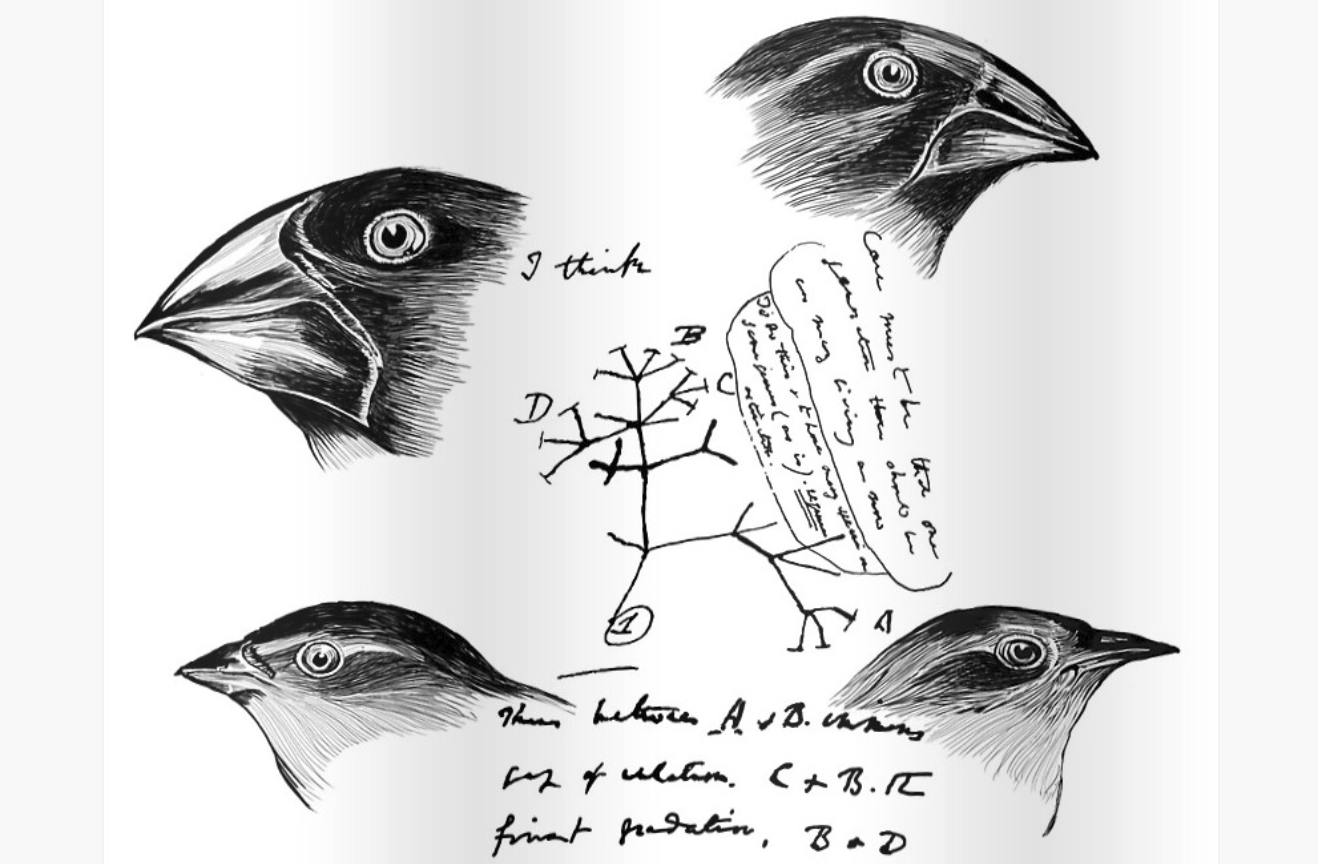 I think
B
C
D
Case must be that one
generation then should be
as many living as now
To do this & to have many species in
same genus (as is). requires
extinction.
A
1
Thus between A & B. immense
gap of relation. C + B. The
finest gradation, B & D